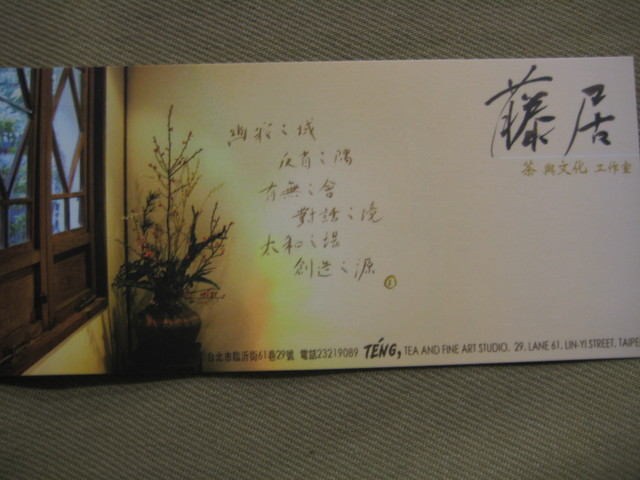 藤居
茶 與文化 工作室
幽寂之域
反省之隅
有無之會
對話之境
太和之場
創造之源
台北市臨沂街61巷29號 電話23219089 TÉNG, TEA AND FINE ART STUDIO. 29. LANE 61. LIN-YI STREET. TAIPE